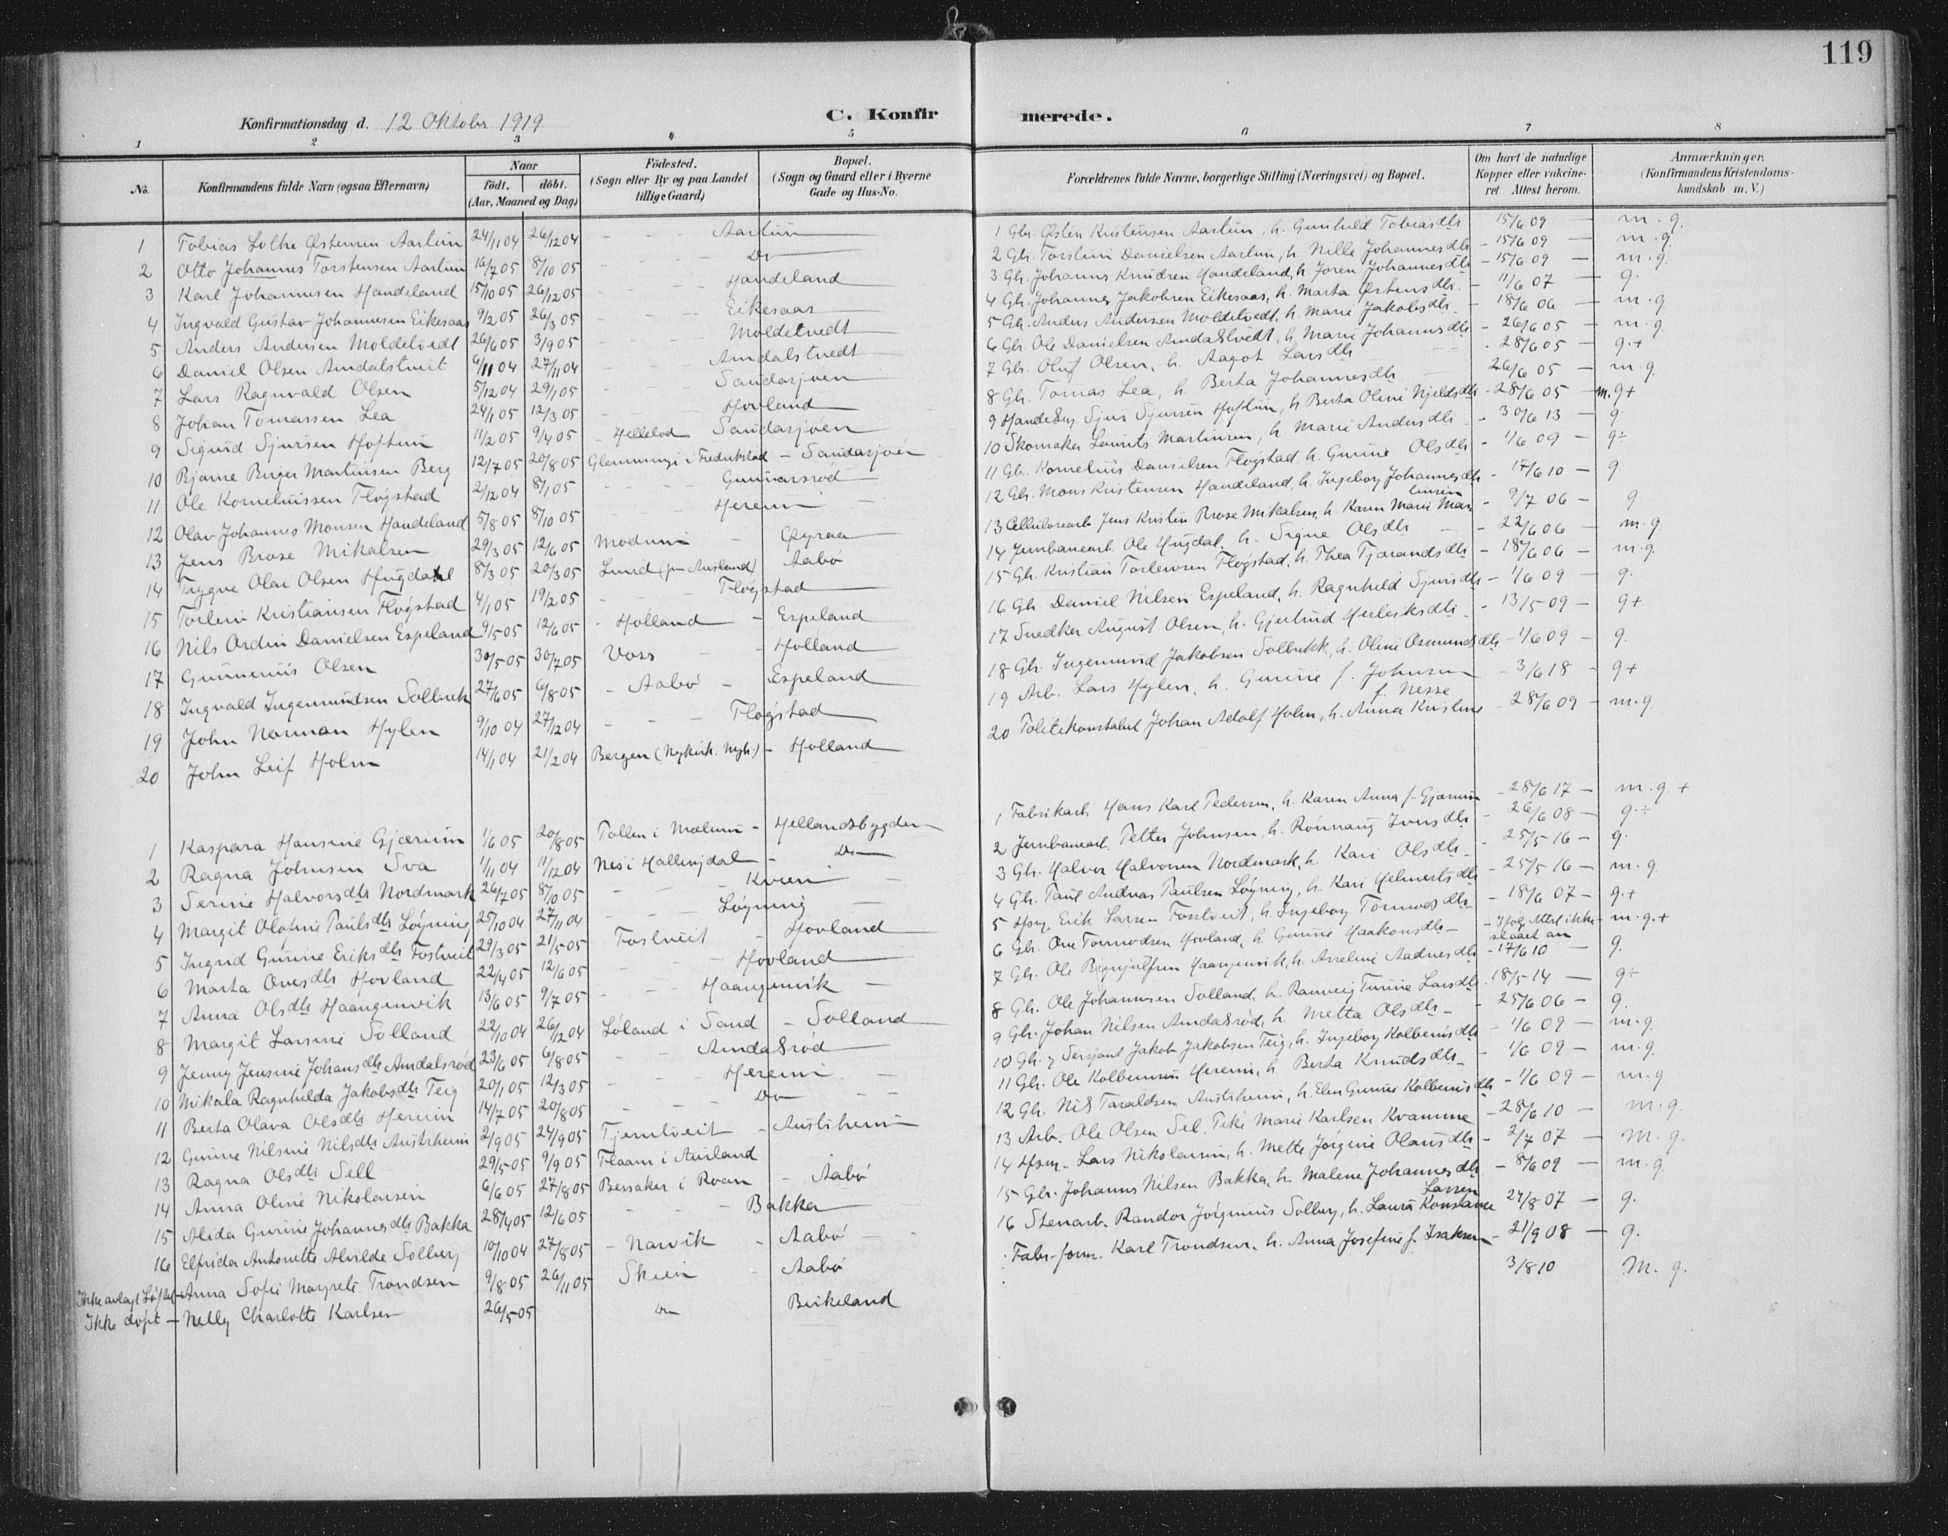 119
Konfirmationsdag d. 12 Oktober 1919
C. Konfirmerede.
1 2 3 4 5 6 7 8
No.
Konfirmandens fulde Navn (ogsaa Efternavn)
Naar
födt. döbt.
(Aar, Maaned og Dag)
Födested.
(Sogn eller By og paa Landet
tillige Gaard)
Bopæl.
(Sogn og Gaard eller i Byerne
Gade og Hus-No.
Forældrenes fulde Navne, borgerlige Stilling (Næringsvei) og Bopæl.
Om havt de naturlige
Kopper eller vakcine-
ret Attest herom.
Anmærkninger.
(Konfirmandens Kristendoms-
kundskab m. V.)
1 Tobias Østensen Aartun 24/11 04 26/12 04 - - - Aartun 1 Gbr. Østen Kristensen Aartun, h. Gunhild Tobiasdtr 15/6 09 - m.g.
2 Otto Johannes Torsteinsen Aartun 16/7 05 8/10 05 - - - Do 2 Gbr. Torstein Danielsen Aartun, h. Nille Johannesdtr - 15/6 09 - m.g.
3 Karl Johannesen Handeland 15/10 05 26/12 05 - - - Handeland 3 Gbr. Johannes Knudsen Handeland, h. Joren Johannesdtr - 15/6 09 - m.g.
4 Ingvald Gustav Johannesen Eikesaas 9/2 05 26/3 05 - - - Eikesaas 4 Gbr. Johannes Jakobsen Eikesaas, h. Marta Østensdtr. - 11/6 07 - g.
5 Anders Andersen Moldetvedt 26/6 05 3/9 05 - - - Moldetvedt 5 Gbr. Anders Andersen Moldetvedt, h. Marie Jakobsdtr. - 18/6 06 - m.g
6 Daniel Olsen Amdalstveit 6/11 04 27/11 04 - - - Amdalstvedt 6 Gbr. Ole Danielsen Amdalstvedt, h. Marie Johannesdtr - 26/6 05 - m.g
7 Lars Ragnvald Olsen 5/12 04 29/1 05 - - - Sandasjøen 7 Gbr. Oluf Olsen, h. Aagot Larsdtr - 28/6 05 - g.+
8 Johan Tomassen Lea 24/1 05 12/3 05 - - - Hovland 8 Gbr. Tomas Lea, h. Berta Johannesdtr - 26/6 05 - m.g.
9 Sigurd Sjursen Hoftun 11/2 05 9/4 05 - Sandasjøen 9 Handelsm Sjur Sjursen Hoftun, h. Berta Oline Njeldsdtr - 28/6 05 - m.g+
10 Bjarne Birger Martinsen Berg 12/7 05 20/8 05 Glemminge i Fredrikstad - Sandasjøen 10 Skomaker Laurits Martinsen, h. Marie Andersdtr - 30/6 13 - g
11 Ole Korneliussen Fløgstad 2/12 04 8/1 05 - - Gunnarsrød 11 Gbr. Kornelius Danielsen Fløgstad, h. Gurine Olsdtr - 1/6 09 - g÷
12 Olav Johannes Monsen Handeland 5/8 05 8/10 05 - - - Hereim 12 Gbr. Mons Kristensen Handeland, h. Ingeborg Johannesdtr - 17/6 10 - g
13 Jens Brose Mikalsen 29/3 05 12/6 05 Modum - Øyraa 13 Cellulosearb Jens Kristin Brose Mikalsen, h. Karen Marie - 9/7 06 - g.
14 Trygve Olav Olsen Hugdahl 8/3 05 20/3 05 Lund - Aabø 14 Jernbanearb Ole Hugdal, h. Signe Olsdtr - 22/6 06 - m.g.
15 Torleiv Kristiansen Fløgstad 4/1 05 19/2 05 - - - Fløgstad 15 Gbr. Kristian Torleivsen Fløgstad, h. Thea Tjærandsdtr - 18/6 06 - m.g.
16 Nils Ordin Danielsen Espeland 9/5 05 12/6 05 - Holland - Espeland 16 Gbr. Daniel Nilsen Espeland, h. Ragnhild Sjursdtr - 1/6 09 - g.
17 Gunnerius Olsen 30/5 05 30/7 05 Voss - Holland 17 Snedker August Olsen, h. Gjertrud - 13/5 09 - g+
18 Ingvald Ingemundsen Solbrekk 27/6 05 6/8 05 - Aabø - Espeland 18 Gbr. Ingemund Jakobsen Solbrekk, h. Oline Osmundsdtr - 1/6 09 - g.
19 John Norman Hylen 9/10 04 27/12 04 - - - Fløgstad 19 Arb. Lars Hylen, h. Gurine f. Johnsen - 3/6 18 - g+
20 John Leif Holm 14/1 04 21/2 04 Bergen (Nykirk. Mgh.) - Holland 20 Politikonstabel Johan Adolf Holm, h. Anna Kristine f. Nesse - 28/6 09 - m.g.
1 Kaspara Hansine Gjærum 1/6 05 20/8 05 Tollen i Mælum - Hellandsbygden 1 Fabrikarb. Hans Karl Pedersen, h. Karen Anna f. Gjærum - 28/6 17 - m.g.+
2 Ragna Johnsen Sva 1/11 04 11/12 04 Nes i Hallingdal - Do 2 Jernbanearb. Petter Johnsen, h. Rønnaug Iversdtr - 26/6 08 - g.÷
3 Serine Halvorsdtr Nordmark 26/7 05 8/10 05 - - - Kvien 3 Gbr. Halvor Halvorsen Nordmark, h. Kari Olsdtr - 25/5 16 - g.
4 Margit Olofine Paulsdtr Løyning 25/10 04 27/11 04 - - - Løyning 4 Gbr. Paul Andreas Paulsen Løyning, h. Kari Helmertsdtr - 25/5 16 - m.g.
5 Ingrid Gurine Eriksdtr Fostveit 29/3 05 21/5 05 Fostveit - Hovland 5 Hsm. Erik Larsen Fostveit, h. Ingeborg Tormodsdtr - 18/6 07 - g.+
6 Marta Ovesdtr Hovland 22/4 05 12/6 05 - - - Hovland 6 Gbr. Ove Tormodsen Hovland, h. Gurine Haakonsdtr - Ifølg Attest ikke slaaet an - m.g.+
7 Anna Olsdtr Haangenvik 13/6 05 9/7 05 - - Haangenvik 7 Gbr. Ole Haangenvik, h. Asseline Aadnesdtr - 17/6 10 - g.
8 Margit Larsine Solland 22/10 04 26/12 04 Løland i Sand - Solland 8 Gbr. Ole Johannesen Solland, h. Ranveig Turine Larsdtr - 18/5 14 - g÷
9 Jenny Jensine Johansdtr Amdalsrød 23/6 05 6/8 05 - - - Amdalsrød 9 Gbr. Johan Nilsen Amdalsrød, h. Metta Olsdtr - 25/6 06 - g.
10 Mikala Ragnhilda Jakobsdtr Teig 20/1 05 12/3 05 - - - Hereim 10 Gbr. og Sersjant Jakob Jakobsen Teig, h. Ingeborg Kolbensdtr - 1/6 09 - m.g.
11 Berta Olava Olsdtr Hereim 14/7 05 20/8 05 - - - Do 11 Gbr. Ole Kolbensen Hereim, h. Berta Knudsdtr - 1/6 09 - m.g.
12 Gurine Nilsine Nilsdtr Austrheim 2/9 05 24/9 05 Tjemtveit - Austrheim 12 Gbr. Nils Taraldsen Austrheim, h. Elen Gurine Kolbensdtr - 1/6 09 - m.g
13 Ragna Olsdtr Sell 29/5 05 9/9 05 Flaam i Aurland 13 Arb. Ole Olsen Sel, Marie Karlsen Kvamme - 28/6 10 - m.g.
14 Anna Oline Nikolaisen 6/6 05 27/8 05 Bessaker i Roan - Aabø 14 Hsm. Lars Nikolaisen, h. Mette Jørgine Olausdtr - 2/7 07 - m.g.
15 Alida Gurine Johannesdtr Bakka 28/4 05 12/6 05 - - - Bakka 15 Gbr. Johannes Nilsen Bakka, h. Malene Johannesdtr - 8/6 09 - m.g.
16 Elfrida Antonette Alvilde Solberg 10/10 04 27/8 05 - Narvik - Aabø 16 Stenarb. Randor Jørginius Solberg, h. Laura Konstanse Larsen 24/8 07 - g.
Anna Sofie Margrete Trondsen 9/8 05 26/11 05 Skien - Aabø Fabr.-form. Karl Trondsen, h. Anna Josefine f. Isaksen - 21/9 08 - g.
Ikke døpt - Nelly Charlotte Karlsen 26/5 05 do Birkeland 3/8 10 M.g.